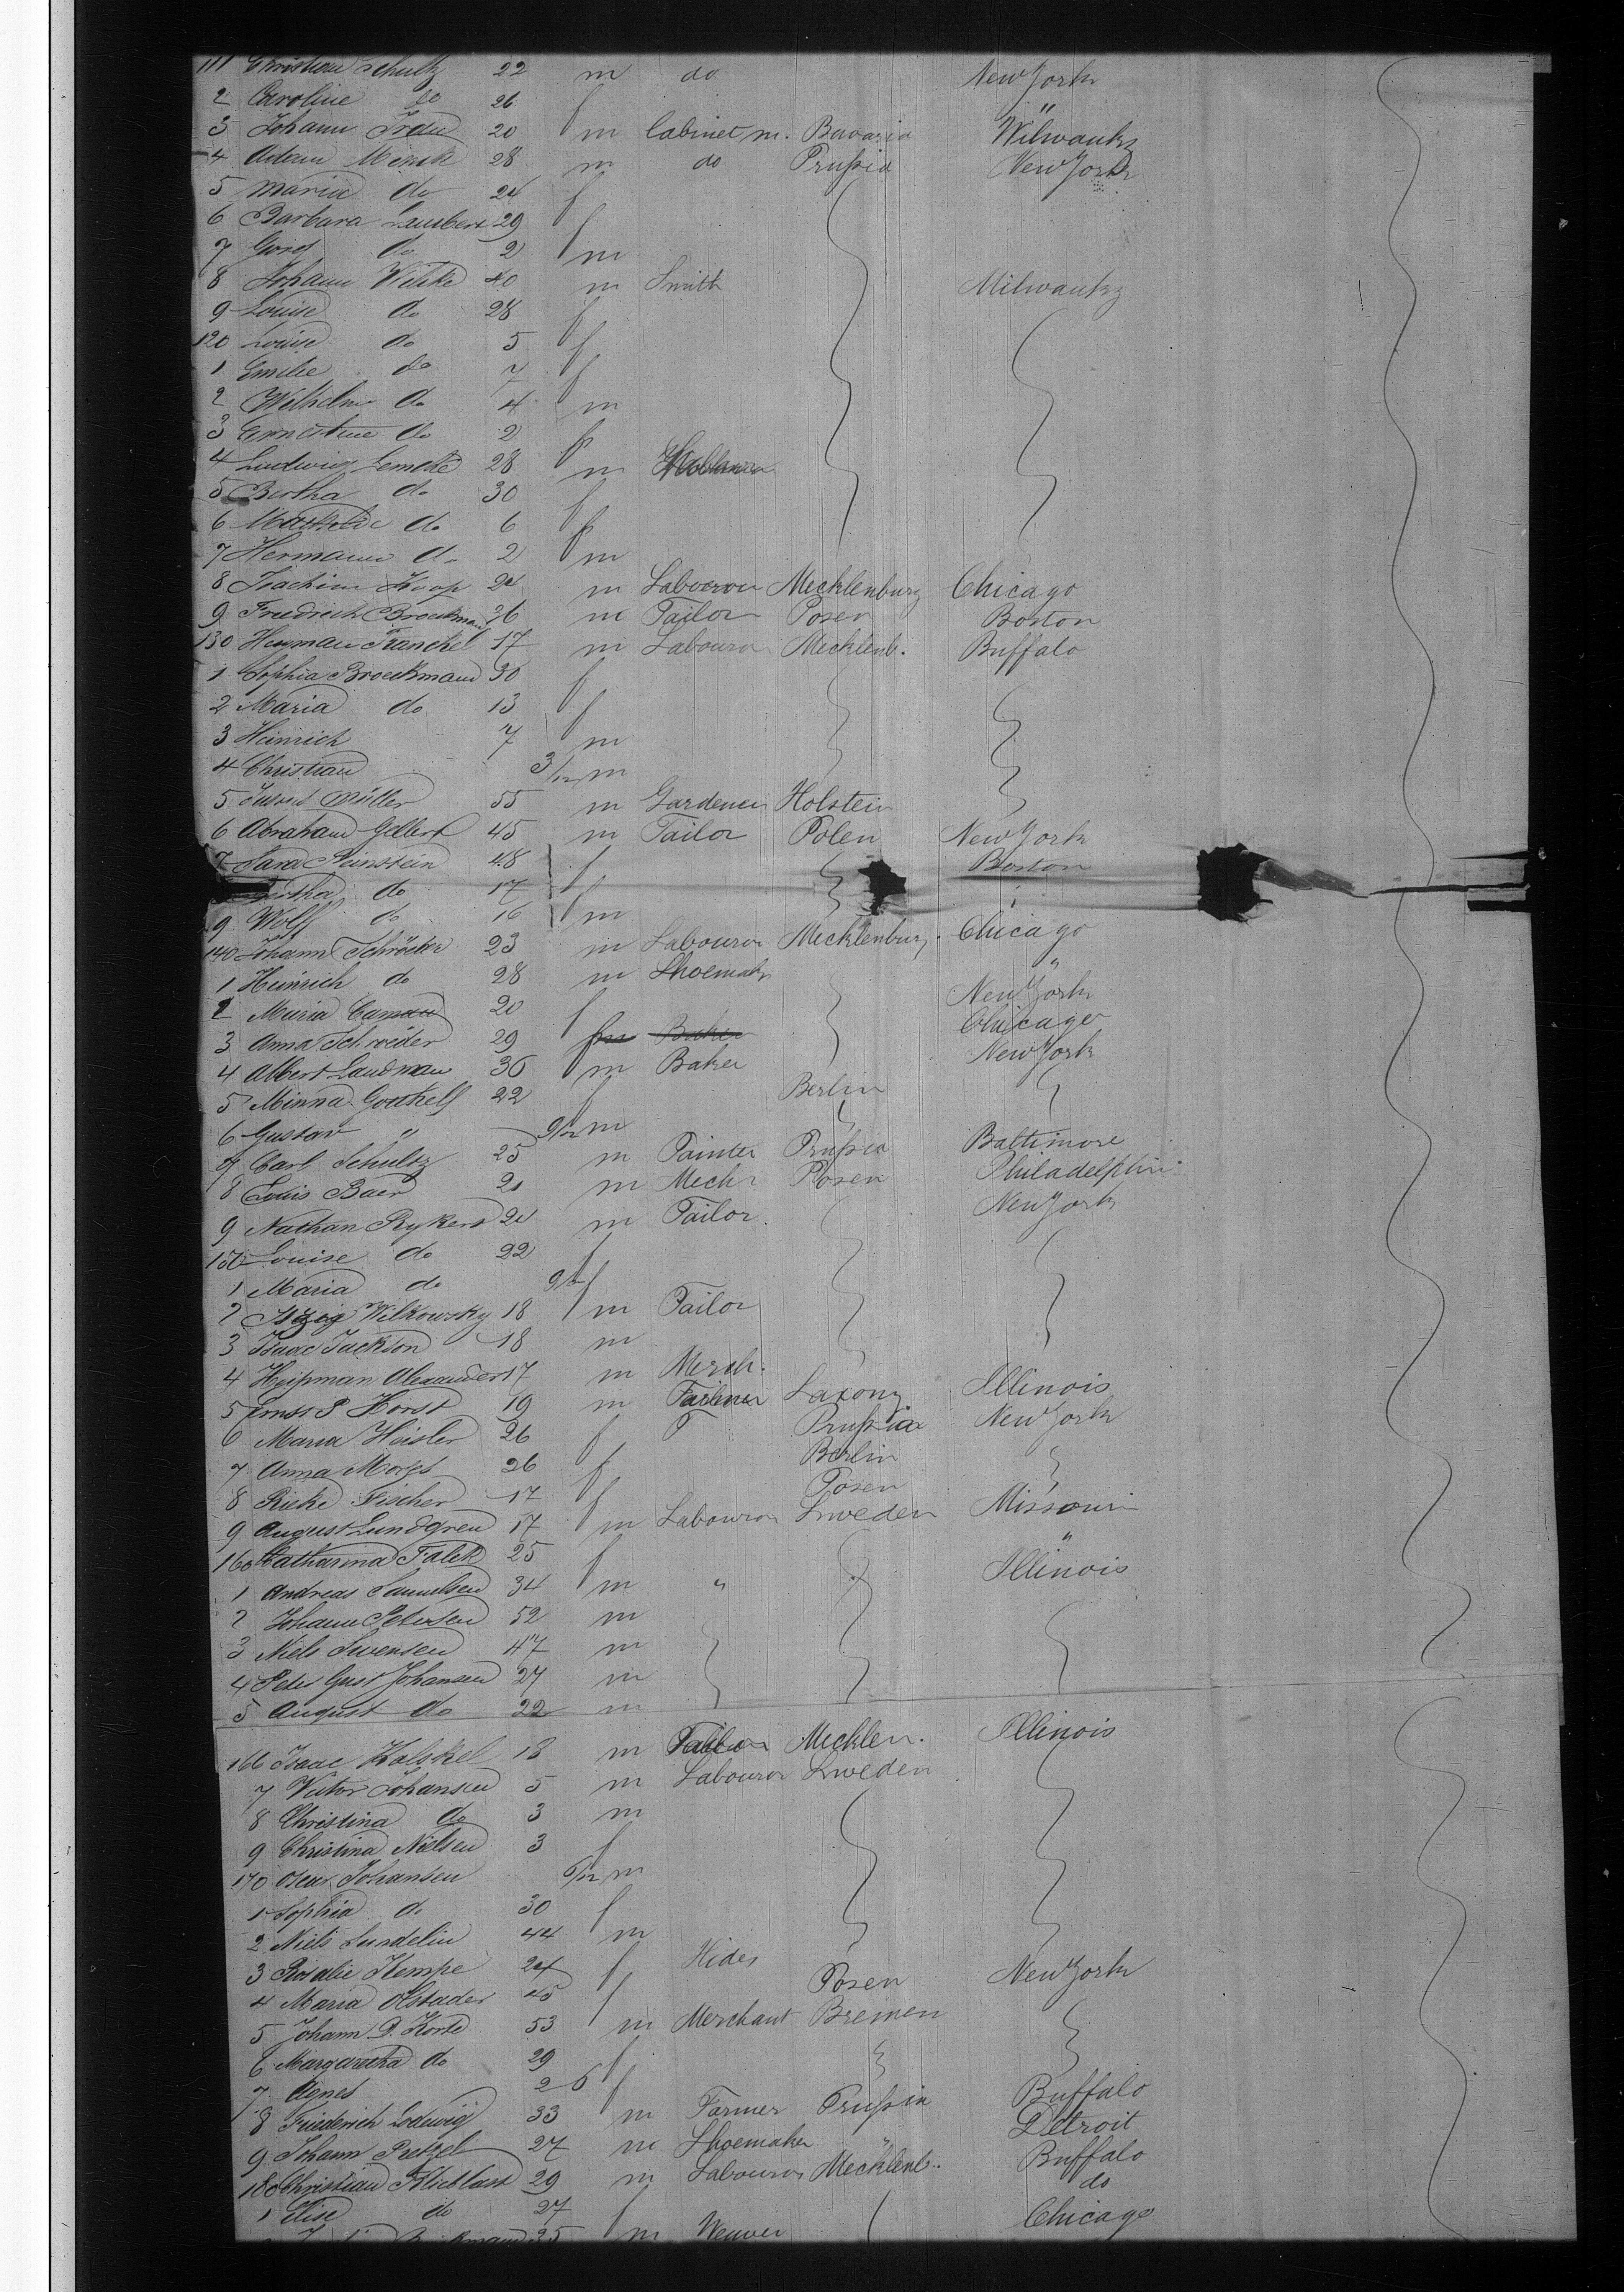 111 Christian Schultz 22 m do New York
2 Caroline do 26 f "
3 Johann 20 m Cabinet m. Bavaria Milwauky
4 Adam 28 m do Prußia New York
5 Maria do 24 f
6 Barbara Laubert 29 f
7 do 2 m
8 Johann Wilke 40 m Smith Milwauky
9 Louise do 28 f
120 Louise do 5 f
1 Emilie do 7 f
2 Wilhelm do 4 m
3 Ernestine do 2 f
4 Ludwig Lemcke 28 m
5 Bertha do 30 f
6 Mathilde do 6 f
7 Hermann do 2 m
8 Joachim Koop 24 m Labourer Mecklenburg Chicago
9 Friedrich Broeckmann 36 m Tailor Posen Boston
130 Heyman Franckel 17 m Labourer Mecklenb. Buffalo
1 Sophia Broeckmann 30 f
2 Maria do 13 f
3 Heinrich 7 m
4 Christian 3/12 m
5 Müller 55 m Gardener Holstein
6 Abraham Gellert 45 m Tailor Polen New York
7 Sara Steinstein 48 f Boston
do 17 f
9 Wolf do 16 m
140 Johann Schröder 23 m Labourer Mecklenburg. Chicago
1 Heinrich do 28 m Shoemaker "
2 Maria 20 f New York
3 Anna Schröder 29 f Baker Chicago
4 Albert Landman 36 m Baker New York
5 Minna Gotthelf 22 f Berlin
6 Gustav " 9/12 m
7 Carl Schultz 25 m Painter Prußia Baltimore
8 Louis Baer 21 m Mech. Posen Philadelphia
9 Nathan Rykers 24 m Tailor New York
150 Louise do 22 f
1 Maria do f
2 Itzig Wilkowsky 18 m Tailor
3 Isaac Jackson 18 m
4 Heyman Alexander 17 m Merch.
5 Ernst P Horst 19 m Saxony Illinois
6 Maria Heisler 26 f Prußia New York
7 Anna 26 f Berlin
8 Rieke Fischer 17 f Posen
9 August Lundgren 17 m Labourer Sweden Missouri
160 Catharina Falck 25 f "
1 Andreas Samuelsen 34 m " Illinois
2 Johann Petersen 52 m
3 Niels Swensen 47 m
4 Peter Gust Johansen 27 m
5 August do 22 m
166 Isaac Kalskel 18 m Mecklen. Illinois
7 Victor Johansen 5 m Labourer Sweden
8 Christina do 3 m
9 Christina Nielsen 3 f
170 Oscar Johansen 6/12 m
1 Sophia do 30 f
2 Niels Lundelin 44 m
3 Rosalie Kempe 24 f Posen New York
4 Maria 45 f
5 Johann D. Korte 53 m Merchant Bremen
6 Margaretha do 29 f
7 Agnes 2 6 f
8 Friederich Lodwig 33 m Farmer Prußia Buffalo
9 Johann Pretzel 27 m Shoemaker " Detroit
180 Christian 29 m Labourer Mecklenb. Buffalo
1 Elise do 27 f do
35 m Weaver Chicago